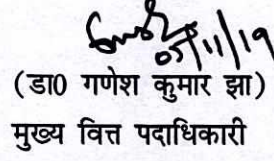 05/11/19
(डा0 गणेश कुमार झा)
मुख्य वित्त पदाधिकारी